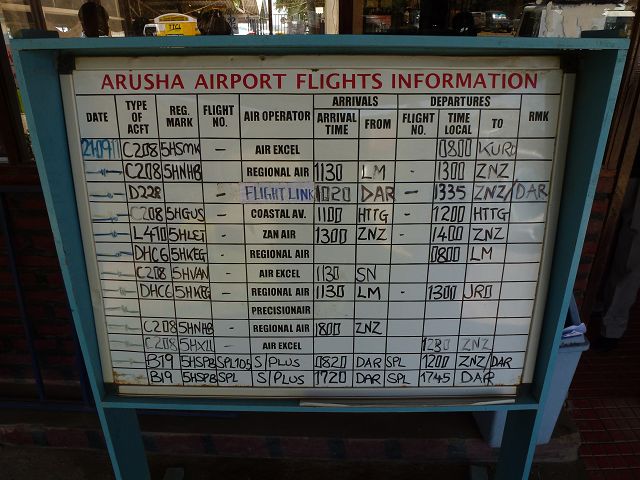 ARUSHA AIRPORT FLIGHTS INFORMATION
DATE TYPE OF ACFT REG. MARK FLIGHT NO. AIR OPERATOR ARRIVALS ARRIVAL TIME FROM DEPARTURES FLIGHT NO. TIME LOCAL TO RMK
C208 5HSMK - AIR EXCEL 0800 KURO
C208 5HNHB - REGIONAL AIR 1130 LM - 1300 ZNZ
D228 - FLIGHT LINK 1020 DAR - 1335 ZNZ/DAR
C208 5HGUS - COASTAL AV. 1100 HTTG - 1200 HTTG
L410 - ZAN AIR 1300 ZNZ 1400 ZNZ
DHC6 5HKEG - REGIONAL AIR 0800 LM
C208 5HVAN - AIR EXCEL 1130 SN
DHC6 5HKEG - REGIONAL AIR 1130 LM - 1300 JRO
PRECISIONAIR
C208 5HNHB - REGIONAL AIR 1800 ZNZ
C208 5HXLL - AIR EXCEL 1230 ZNZ
B19 5HSPB SPL105 S/PLUS 0820 DAR SPL 1200 ZNZ/DAR
B19 5HSPB SPL S/PLUS 1720 DAR SPL 1745 DAR